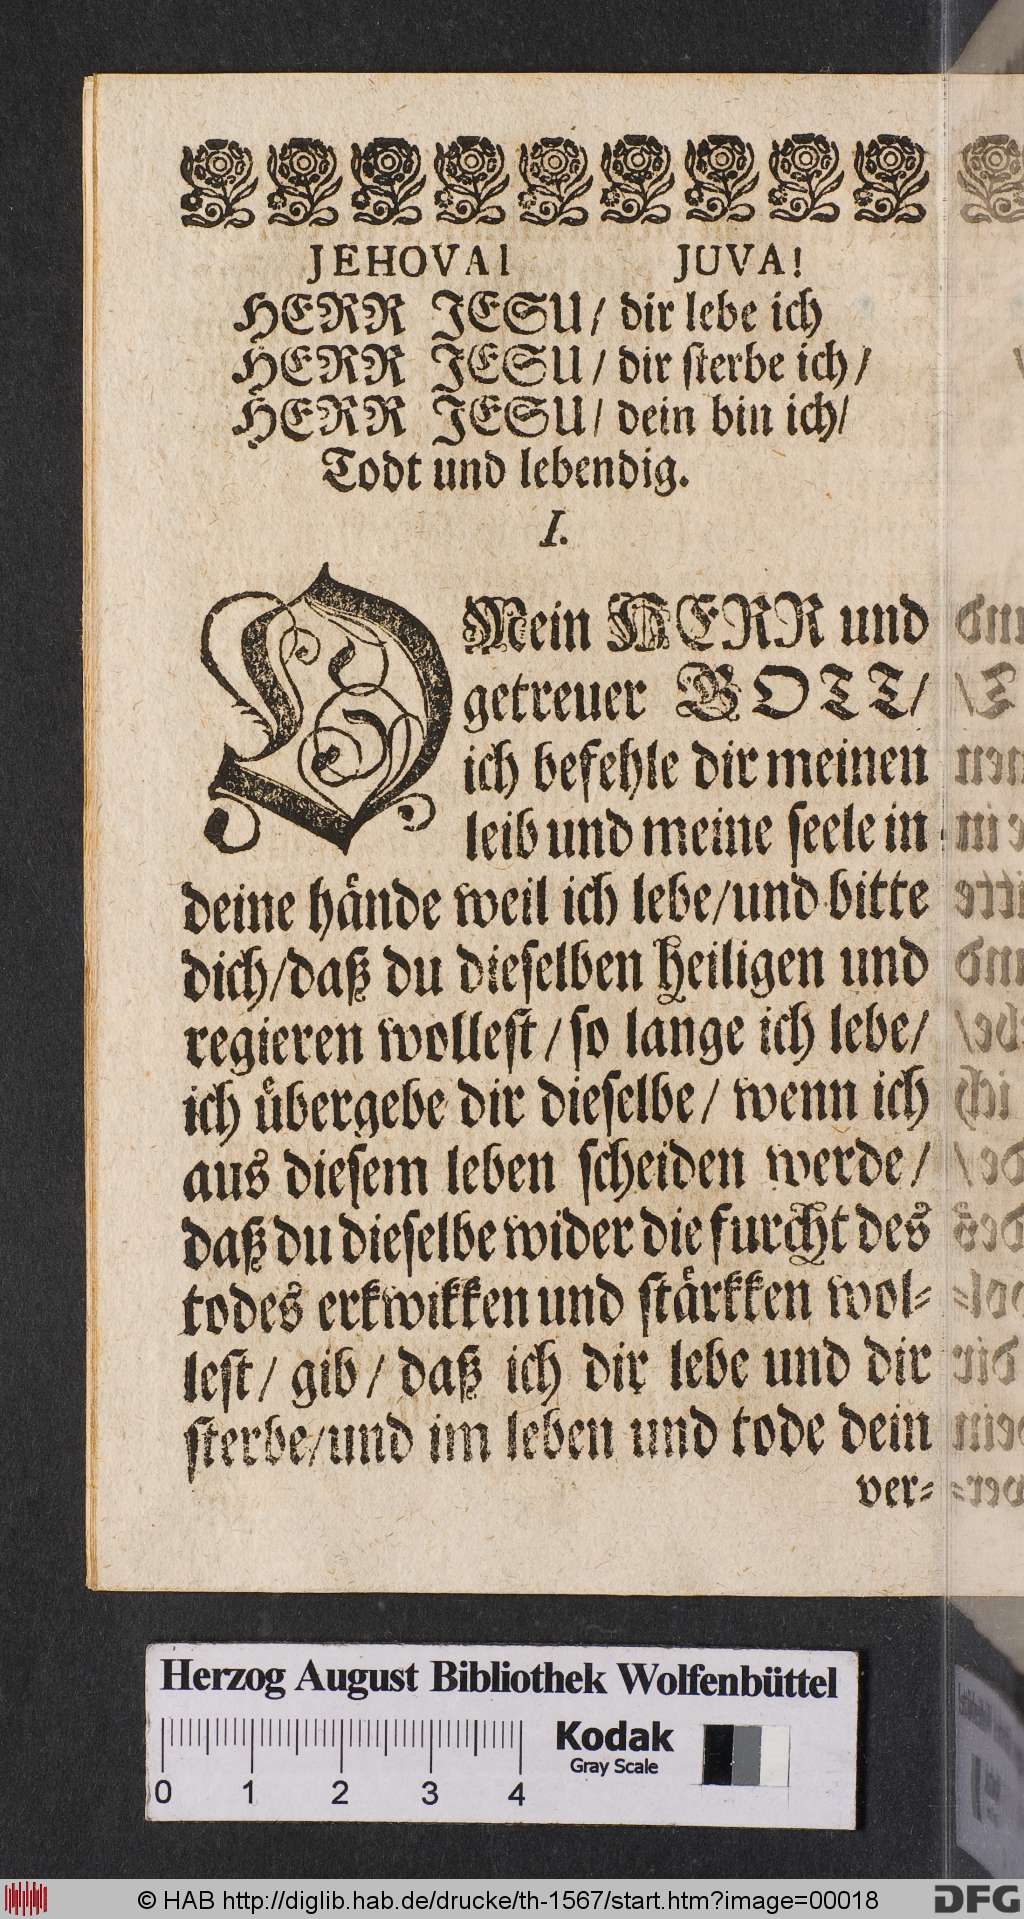 JEHOVA! JUVA!
HERR JESU/ dir lebe ich
HERR JESU/ dir sterbe ich/
HERR JESU/ dein bin ich/
Todt und lebendig.
I.
O Mein HERR und
getreuer GOTT/
ich befehle dir meinen
leib und meine seele in
deine hände weil ich lebe/und bitte
dich/daß du dieselben heiligen und
regieren wollest/so lange ich lebe/
ich übergebe dir dieselbe/wenn ich
aus diesem leben scheiden werde/
daß du dieselbe wider die furcht des
todes erkwikken und stärkken wol-
lest/ gib/ daß ich dir lebe und dir
sterbe/und im leben und tode dein
ver-
Herzog August Bibliothek Wolfenbüttel
Kodak
Gray Scale
0 1 2 3 4
© HAB http://diglib.hab.de/drucke/th-1567/start.htm?image=00018
DFG